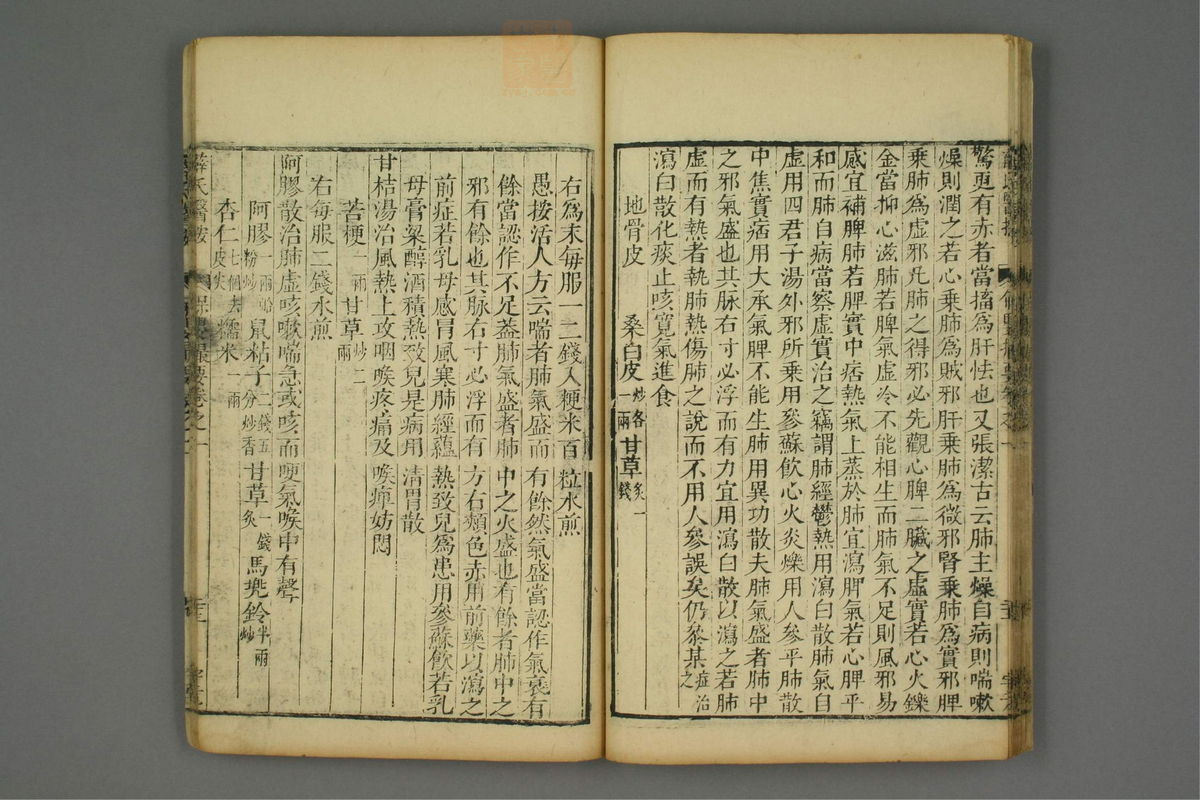 驚更有赤者當搐爲肝怯也又張潔古云肺主燥自病則喘嗽
燥則潤之若心乘肺爲賊邪肝乘肺爲微邪腎乘肺爲實邪脾
乘肺爲虛邪凡肺之得邪必先觀心脾二臟之虛實若心火鑠
金當抑心滋肺若脾氣虛冷不能相生而肺氣不足則風邪易
感宜補脾肺若脾實中痞熱氣上蒸於肺宜瀉脾氣若心脾平
和而肺自病當察虛實治之竊謂肺經鬱熱用瀉白散肺氣自
虛用四君子湯外邪所乘用參蘇飲心火炎爍用人參平肺散
中焦實病用大承氣脾不能生肺用異功散夫肺氣盛者肺中
之邪氣盛也其脉右寸必浮而有力宜用瀉白散以瀉之若肺
虛而有熱者執肺熱傷肺之說而不用人參誤矣仍叅某症治之
瀉白散化痰止咳寬氣進食
地骨皮 桑白皮炒各一兩 甘草炙一錢
右爲末每服一二錢入粳米百粒水煎
愚按活人方云喘者肺氣盛而有餘然氣盛當認作氣衰有
餘當認作不足葢肺氣盛者肺中之火盛也有餘者肺中之
邪有餘也其脉右寸必浮而有方右頰色赤用前藥以瀉之
前症若乳母感冒風寒肺經蘊熱致兒爲患用參蘇飲若乳
母膏粱醇酒積熱致兒是病用清胃散
甘桔湯治風熱上攻咽喉疼痛及喉痹妨悶
苦梗一兩 甘草炒二兩
右每服二錢水煎
阿膠散治肺虛咳嗽喘急或咳而哽氣喉中有聲
阿膠一兩蛤粉炒 鼠粘子二錢五分炒香 甘草炙一錢 馬兜鈴半兩炒
杏仁七個去皮尖 糯米一兩
薛氏醫按 保嬰撮要卷之一